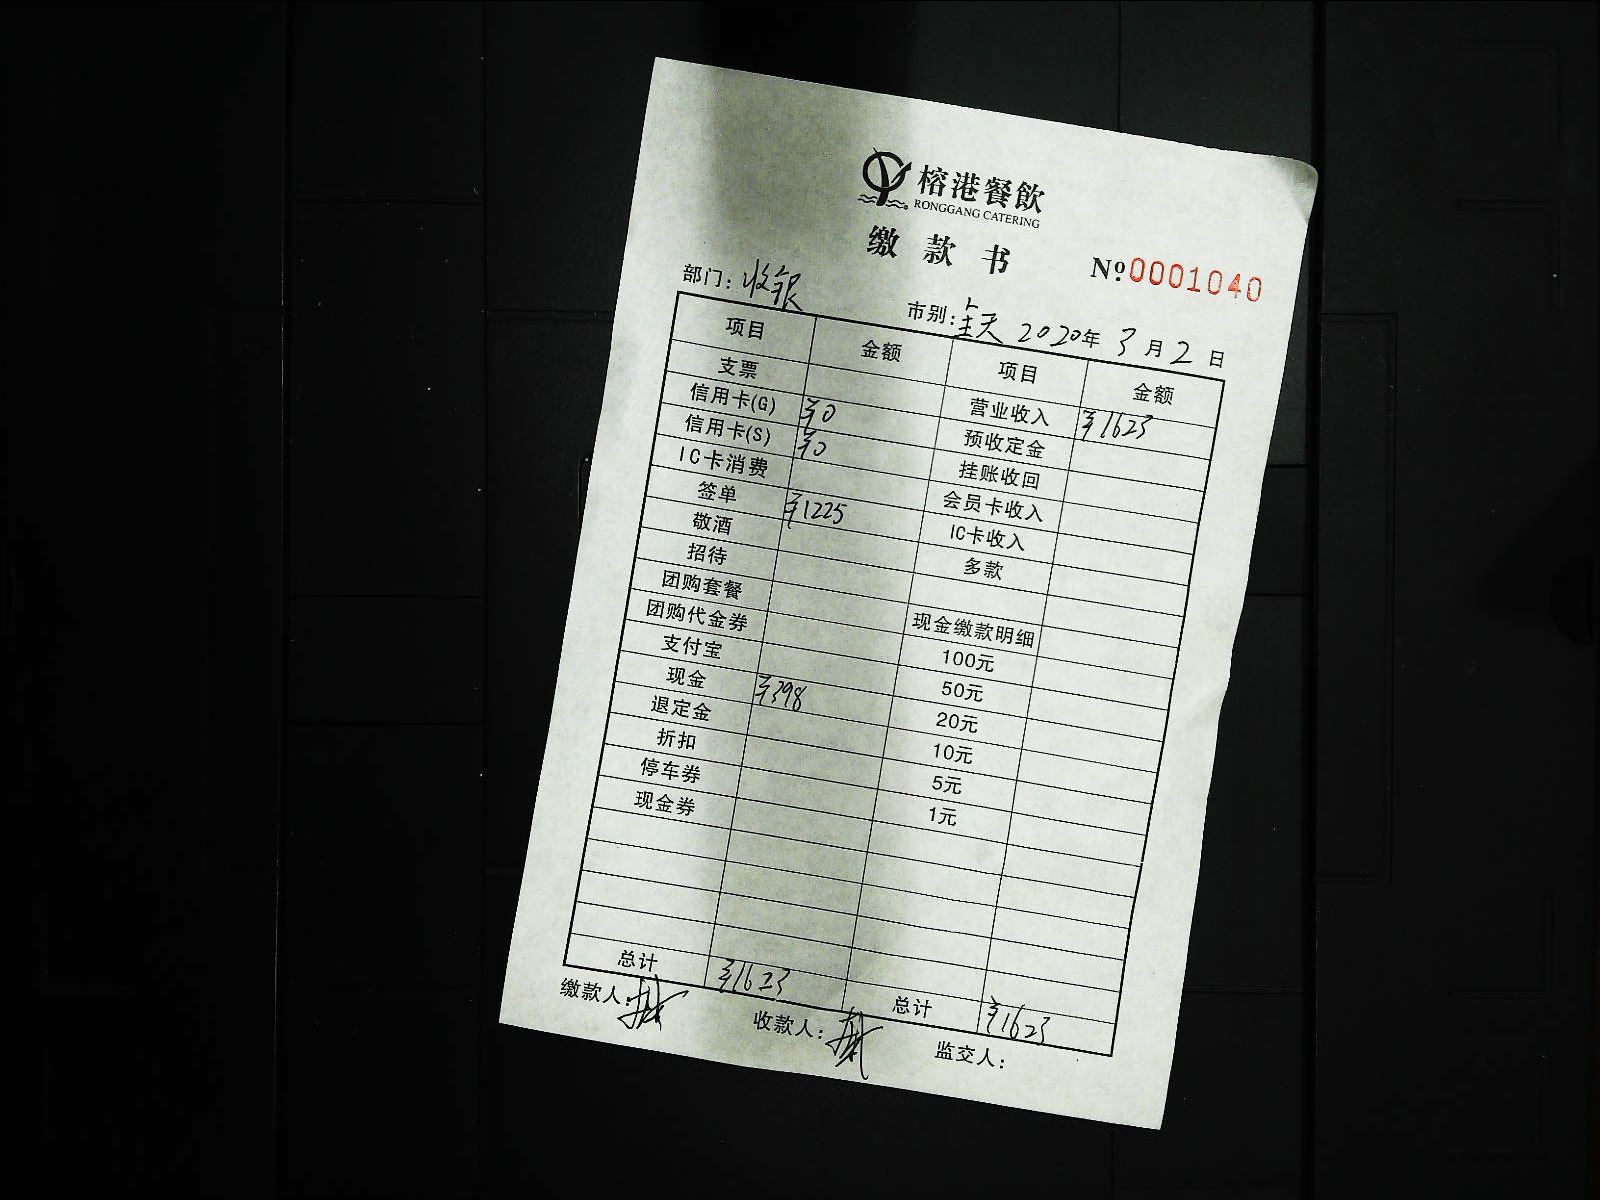 榕港餐飲
RONGGANG CATERING
缴款书
Nº 0001040
部门：收银 市别：全天 2020年3月2日
项目 金额 项目 金额
支票 营业收入 ¥1623
信用卡(G) ¥0 预收定金
信用卡(S) ¥0 挂账收回
IC卡消费 会员卡收入
签单 ¥1225 IC卡收入
敬酒 多款
招待
团购套餐 现金缴款明细
团购代金券 100元
支付宝 50元
现金 ¥398 20元
退定金 10元
折扣 5元
停车券 1元
现金券
总计 ¥1623 总计 ¥1623
缴款人： 收款人： 监交人：